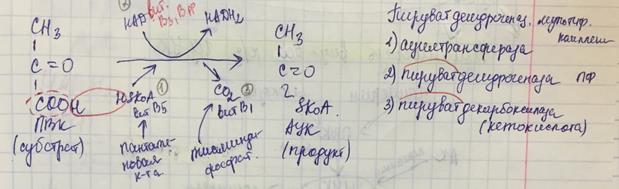 CH₃
C=O
COOH
ПВК
(субстрат)
②
НАД
вит.
В5, ВРР
НАДН₂
HSKoA ①
вит В5
Пантоте-
новая
к-та
CO₂ ③
вит В1
тиаминди-
фосфат.
CH₃
C=O
SKoA
АУК
(продукт)
Пируватдегидрогеназ. мультифр.
комплекс
1) ацилтрансфераза
2) пируватдегидрогеназа ПФ
3) пируватдекарбоксилаза
(кетокислота)